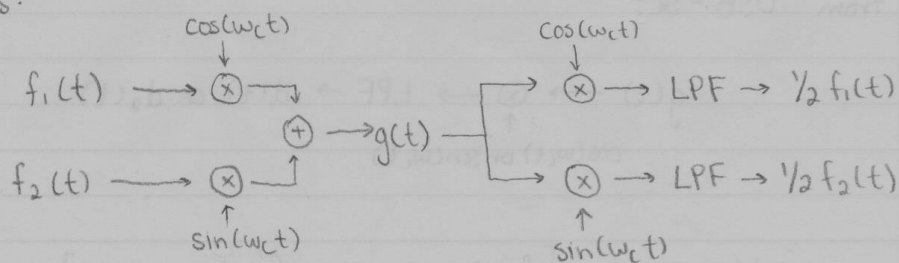 cos(ωct) cos(ωct)
f₁(t) → ⊗ ⊗ → LPF → ½ f₁(t)
⊕ → g(t)
f₂(t) → ⊗ ⊗ → LPF → ½ f₂(t)
sin(ωct) sin(ωct)